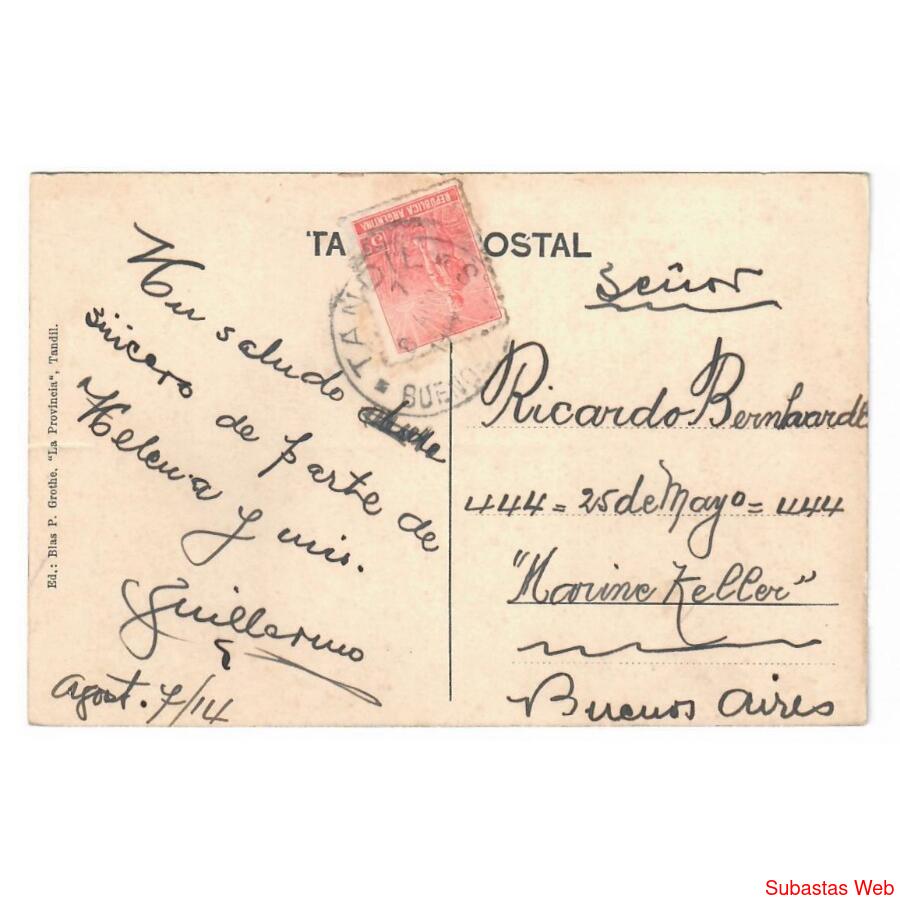 TA OSTAL
REPUBLICA ARGENTINA
5
TANDIL
BUENO S
Un saludo
sincero de parte de
Helena y mio.
Guillermo
Agost. 7/14
Señor
Ricardo Bernhardt
444 = 25 de Mayo = 444
"Marine Keller"
Buenos Aires
Ed.: Blas P. Grothe. "La Provincia", Tandil.
Subastas Web